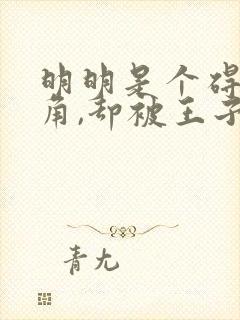 明明是个碍
角,却被王子
青尢